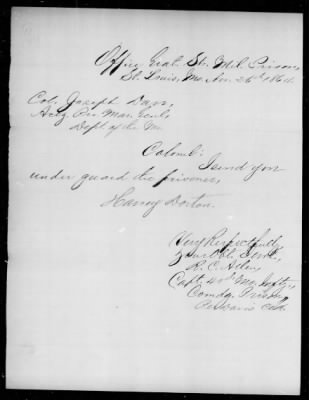 Office Grat. St. Mil. Prison,
St. Louis, Mo. Nov. 26th 1864.
Col. Joseph Darr,
Actg. Pro. Mar. Genl.
Dept. of the Mo.
Colonel: I send you
under guard the prisoner,
Harvey Dorton
Very Respectfully
Your Obt. Servt,
R. C. Allen,
Capt. 40th Mo. Infty.
Comdg. Prison